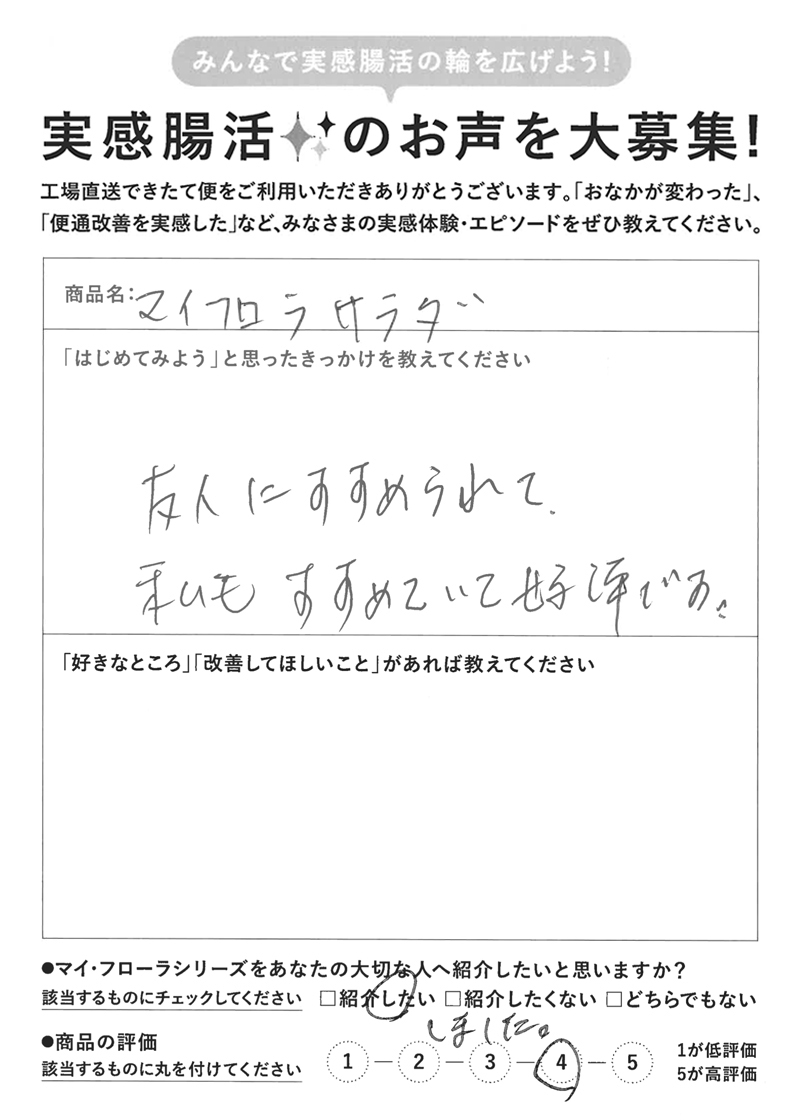 みんなで実感腸活の輪を広げよう!
実感腸活のお声を大募集!
工場直送できたて便をご利用いただきありがとうございます。「おなかが変わった」、
「便通改善を実感した」など、みなさまの実感体験・エピソードをぜひ教えてください。
商品名:マイフローラ サラダ
「はじめてみよう」と思ったきっかけを教えてください
友人にすすめられて、
私もすすめていて好評です。
「好きなところ」「改善してほしいこと」があれば教えてください
●マイ・フローラシリーズをあなたの大切な人へ紹介したいと思いますか?
該当するものにチェックしてください □紹介したい □紹介したくない □どちらでもない
しました。
●商品の評価
該当するものに丸を付けてください
1 — 2 — 3 — 4 — 5
1が低評価
5が高評価